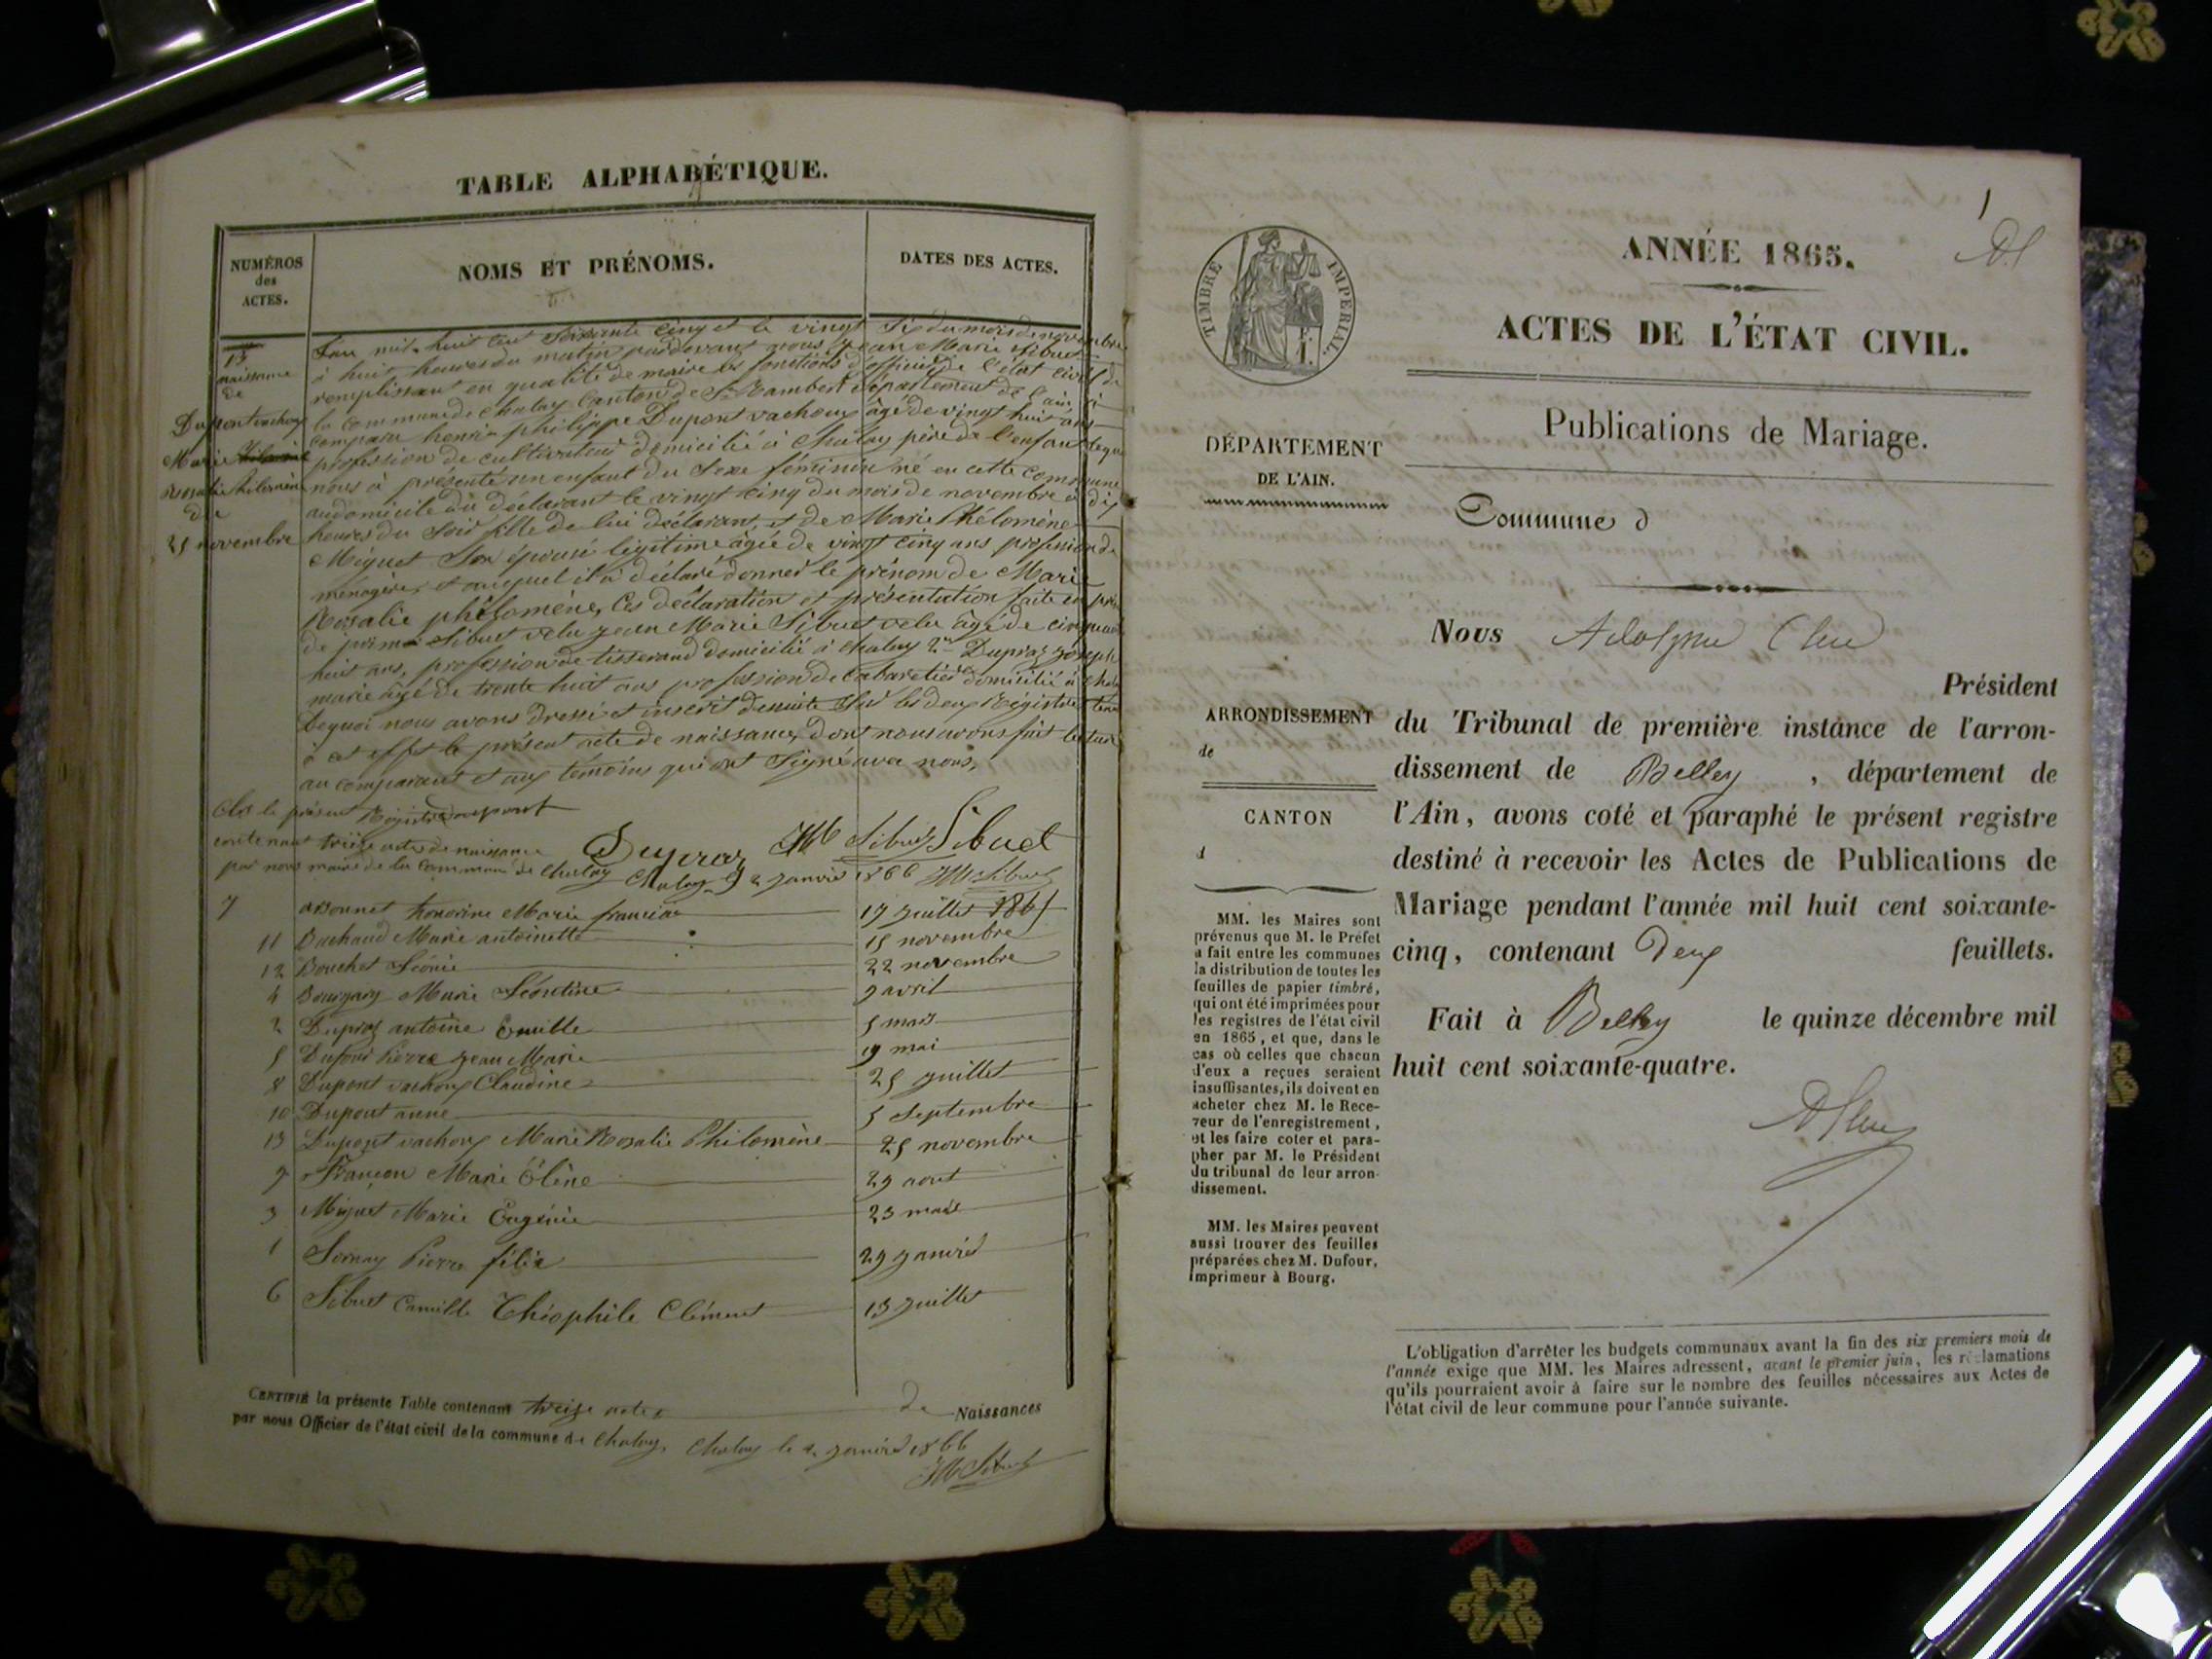 TABLE ALPHABÉTIQUE.
NUMÉROS
des
ACTES.
NOMS ET PRÉNOMS.
DATES DES ACTES.
13
naissance
de
Dupont vachoux
Marie
Rosalie Filomène
du
25 novembre
L'an mil huit cent soixante cinq et le vingt six du mois de novembre
à huit heures du matin pardevant nous Jean Marie Sibuet
remplissant en qualité de maire les fonctions d'officier de l'état civil de
la commune de Chaley Canton de St Rambert département de l'ain
comparu henri philippe Dupont vachoux âgé de vingt huit ans
profession de cultivateur domicilié à Chaley père de l'enfant lequel
nous à présenté un enfant du Sexe féminin né en cette commune
au domicile du déclarant le vingt cinq du mois de novembre à dix
heures du Soir fille de lui déclarant, et de Marie Phélomène
Miguet Son épouse légitime âgée de vingt cinq ans profession de
ménagère, et auquel il à déclaré donner le prénom de Marie
Rosalie phélomène, Ces déclaration et présentation faite en
de Sibuet velu Jean Marie Sibuet velu âgé de cinquante
huit ans, profession de tisserand domicilié à Chaley 2nt Dupraz Joseph
marie âgé de trente huit ans profession de Cabaretier domicilié à Chaley
De quoi nous avons dressé et inscrit desuite Sur les deux Régistres tenu
à cet effet le présent acte de naissance, dont nous avons fait lecture
au comparant et aux témoins qui ont Signé avec nous,
Clos le présent Régistre dupont
contenant treize actes de naissance
par nous maire de la Commune de Chaley
Dupraz JM Sibuet Sibuet
Chaley le 2 Janvier 1866 JM Sibuet
7 Bonnet honorine Marie francine 17 Juillet 1865
11 Bachaud Marie antoinette 15 novembre
12 Bouchet Léonie 22 novembre
4 Marie Léontine 9 avril
2 Dupraz antoine Emille 5 mars
5 Dufour Pierre Jean Marie 19 mai
8 Dupont vachoux Claudine 25 Juillet
10 Dupont anne 5 Septembre
13 Dupont vachoux Marie Rosalie Philomène 25 novembre
9 Françon Marie Élène 29 aout
3 Miguet Marie Eugénie 23 mars
1 Sornay Pierre félix 29 Janvier
6 Sibuet Camille Théophile Clément 13 Juillet
CERTIFIÉ la présente Table contenant treize actes de Naissances
par nous Officier de l'état civil de la commune de Chaley, Chaley le 2 Janvier 1866
JM Sibuet
1
ANNÉE 1865.
TIMBRE IMPERIAL.
ACTES DE L'ÉTAT CIVIL.
Publications de Mariage.
DÉPARTEMENT
DE L'AIN.
Commune d
ARRONDISSEMENT
de
CANTON
d
MM. les Maires sont
prévenus que M. le Préfet
a fait entre les communes
la distribution de toutes les
feuilles de papier timbré,
qui ont été imprimées pour
les registres de l'état civil
en 1865, et que, dans le
cas où celles que chacun
d'eux a reçues seraient
insuffisantes, ils doivent en
acheter chez M. le Rece-
veur de l'enregistrement,
et les faire coter et para-
pher par M. le Président
du tribunal de leur arron-
dissement.
MM. les Maires peuvent
aussi trouver des feuilles
préparées chez M. Dufour,
imprimeur à Bourg.
Nous Adolphe
Président
du Tribunal de première instance de l'arron-
dissement de Belley, département de
l'Ain, avons coté et paraphé le présent registre
destiné à recevoir les Actes de Publications de
Mariage pendant l'année mil huit cent soixante-
cinq, contenant Deux feuillets.
Fait à Belley le quinze décembre mil
huit cent soixante-quatre.
L'obligation d'arrêter les budgets communaux avant la fin des six premiers mois de
l'année exige que MM. les Maires adressent, avant le premier juin, les réclamations
qu'ils pourraient avoir à faire sur le nombre des feuilles nécessaires aux Actes de
l'état civil de leur commune pour l'année suivante.